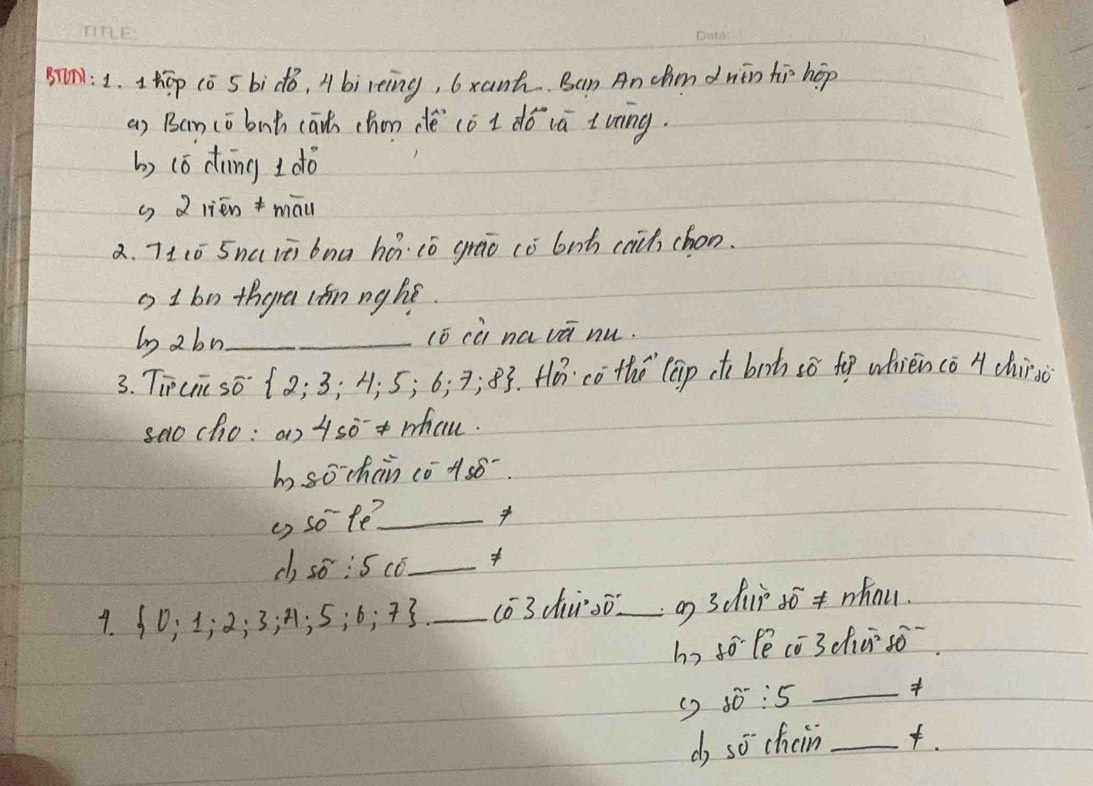 TITLE: Date:
BTVN: 1. 1 hộp có 5 bi đỏ, 4 bi vàng, 6 xanh. Bạn An chọn 2 viên từ hộp
a) Bạn có bnh cách chọn để có 1 đỏ và 1 vàng.
b) có đúng 1 đỏ
c) 2 viên ≠ màu
2. T1 có 5 na và 6 nu hỏi cô giáo có bnh cách chọn.
a) 1 bn tham gia văn nghệ.
b) 2 bn ______ có cả na và nu.
3. Từ các số {2; 3; 4; 5; 6; 7; 8}. Hỏi có thể lập đc bnh số tự nhiên có 4 chữ số
sao cho: a) 4 số ≠ nhau.
b) số chẵn có 4 số.
c) số lẻ ______ ≠
d) số ⋮ 5 có ____ ≠
4. {0; 1; 2; 3; 4; 5; 6; 7}. ___ có 3 chữ số __. a) 3 chữ số ≠ nhau.
b) số lẻ có 3 chữ số.
c) số ⋮ 5 _____ ≠
d) số chẵn ____ ≠.